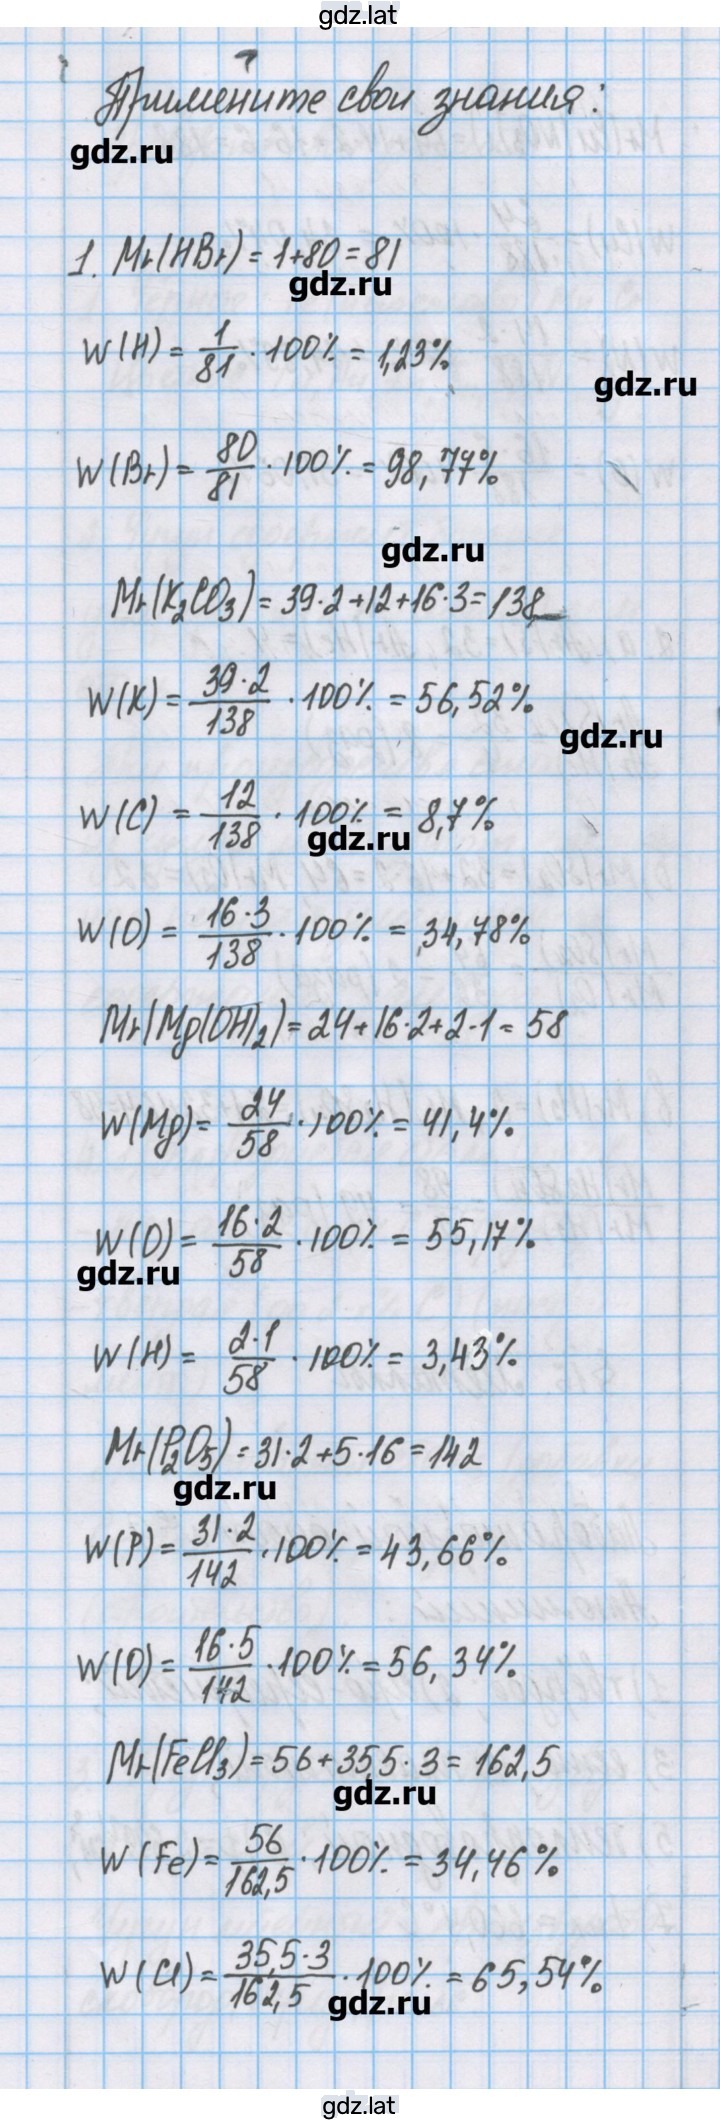 gdz.lat
Примените свои знания:
gdz.ru
1. Mr(HBr) = 1+80 = 81
gdz.ru
W(H) = 1/81 · 100% = 1,23%
gdz.ru
W(Br) = 80/81 · 100% = 98,77%
gdz.ru
Mr(K₂CO₃) = 39·2+12+16·3 = 138
W(K) = 39·2/138 · 100% = 56,52%
gdz.ru
W(C) = 12/138 · 100% = 8,7%
gdz.ru
W(O) = 16·3/138 · 100% = 34,78%
Mr(Mg(OH)₂) = 24+16·2+2·1 = 58
W(Mg) = 24/58 · 100% = 41,4%
W(O) = 16·2/58 · 100% = 55,17%
gdz.ru
W(H) = 2·1/58 · 100% = 3,43%
Mr(P₂O₅) = 31·2+5·16 = 142
gdz.ru
W(P) = 31·2/142 · 100% = 43,66%
W(O) = 16·5/142 · 100% = 56,34%
Mr(FeCl₃) = 56+35,5·3 = 162,5
gdz.ru
W(Fe) = 56/162,5 · 100% = 34,46%
W(Cl) = 35,5·3/162,5 · 100% = 65,54%
gdz.ru
gdz.lat